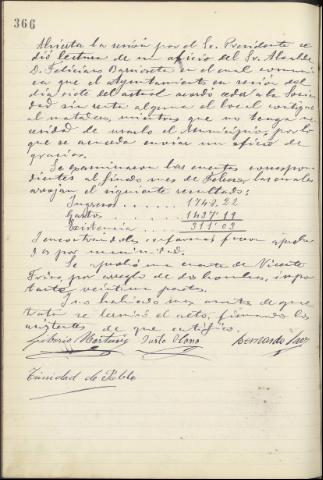 366
Abierta la sesión por el Sr. Presidente se
dió lectura de un oficio del Sr. Alcalde
D. Feliciano en el cual comuni
ca que el Ayuntamiento en sesión del
día siete del actual acordó ceda a la Socie
dad sin renta alguna el local contiguo
al matadero, mientras que no tenga ne
cesidad de usarlo el Municipio, por lo
que se acuerda enviar un oficio de
gracias.
Se examinaron las cuentas correspon
dientes al finado mes de Febrero, las cuales
arrojan el siguiente resultado:
Ingresos . . . . . 1748.22
Gastos . . . . . 1437'19
Existencia . . . . 311'03
Y encontrándolas conformes fueron aproba
das por unanimidad.
Se aprobó una cuenta de Vicente
por arreglo de dos bombas, impor
tante veintiun pesetas.
Y no habiendo mas asuntos de que
tratar se levantó el acto, firmando los
asistentes de que certifico.
Justo Olano Bernardo Saez
Trinidad de Pablo